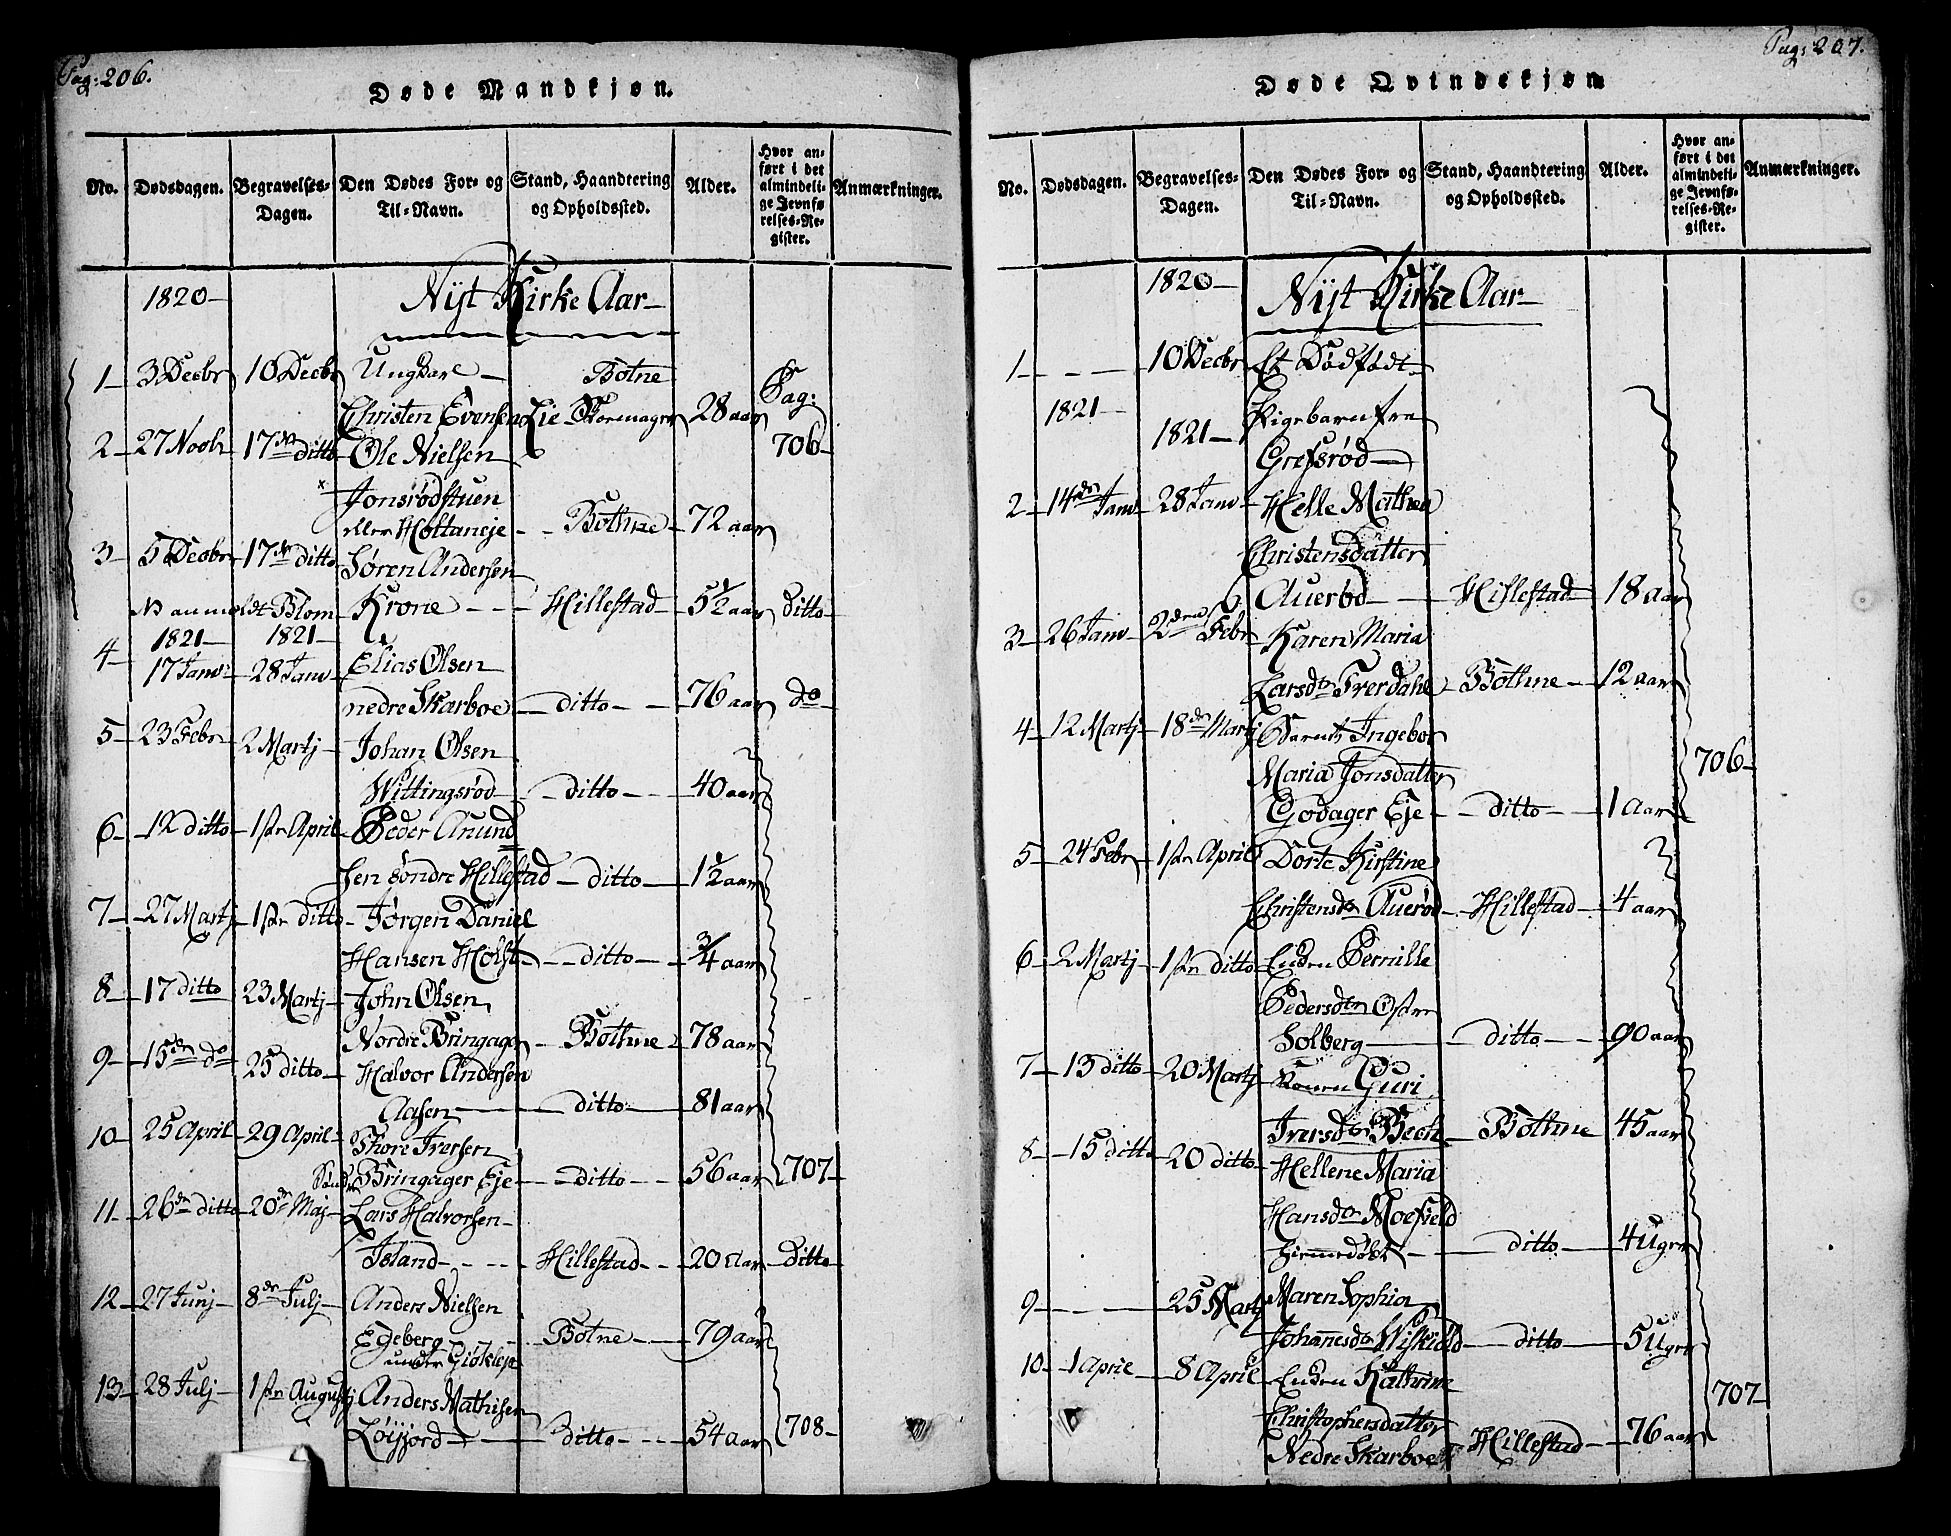 Pag: 206.
Døde Mandkjøn.
No. Dødsdagen. Begravelses-Dagen. Den Dødes For- og Til-Navn. Stand, Haandtering og Opholdssted. Alder. Hvor anført i det almindelige Jevnførelses-Register. Anmærkninger.
1820 Nyt Kirke Aar
1 3 Decbr 10 Decbr Ungkarl Botne
Christen Evensen Eje 28 aar Pag:
2 27 Novbr 17de ditto Ole Nielsen 706
Jonsrødstuen
eller Holtaneje Bothne 72 aar
3 5 Decbr 17de ditto Søren Andersen
NB anmeldt Blom Krone Hillestad 5 1/2 aar ditto
1821 1821
4 17 Janv 28 Janv Elias Olsen
nedre Skarboe ditto 76 aar do
5 23 Febr 2 Martj Johan Olsen
Wittingsrød ditto 40 aar
6 12 ditto 1ste April Peder Amund
sen søndre Hillestad ditto 1 1/2 aar
7 27 Martj 1ste ditto Jørgen Daniel
Hansen Holst ditto 3/4 aar
8 17 ditto 23 Martj John Olsen
Nordre Bringager Bothne 78 aar
9 15de do 25 ditto Halvor Andersen
Aasen ditto 81 aar
10 25 April 29 April Thore Iversen
Søndre Bringager Eje ditto 56 aar 707
11 26de ditto 20de Maj Lars Halvorsen
Island Hillestad 20 Aar Ditto
12 27 Junj 8de Julj Anders Nielsen
Egeberg Botne 79 aar
under Giøklep
13 28 Julj 1ste Augustj Anders Mathisen
Løijjord Ditto 54 aar 708
Pag: 207.
Døde Qvindekjøn
No. Dødsdagen. Begravelses-Dagen. Den Dødes For- og Til-Navn. Stand, Haandtering og Opholdssted. Alder. Hvor anført i det almindelige Jevnførelses-Register. Anmærkninger.
1820 Nyt Kirke Aar
1 10 Decbr Et Dødfødt
1821 1821 Pigebarn fra
Grefsrød
2 14de Janv 28 Janv Helle Mathea
Christensdatter
Auerød Hillestad 18 aar
3 26 Janv 2den Febr Karen Maria
Larsdtr Frerdahl Bothne 12 aar
4 12 Martj 18de Martj Barnet Ingebor
Maria Jonsdatter 706
Godager Eje ditto 1 Aar
5 24 Febr 1ste April Dorte Kirstine
Christensdr Auerød Hillestad 4 aar
6 2 Martj 1ste ditto Enken Pernille
Pedersdtr Østre
Solberg ditto 90 aar
7 13 ditto 20 Martj Konen Guri
Iversdtr Bech Bothne 45 aar
8 15 ditto 20 ditto Hellene Maria
Hansdtr Moefield
hiemmedøbt ditto 4 Uger
9 25 Martj Maren Sophia
Johannesdtr Wiskiold ditto 5 Uger
10 1 April 8 April Enken Kathrine 707
Christophersdatter
Nedre Skarboe Hillestad 76 aar